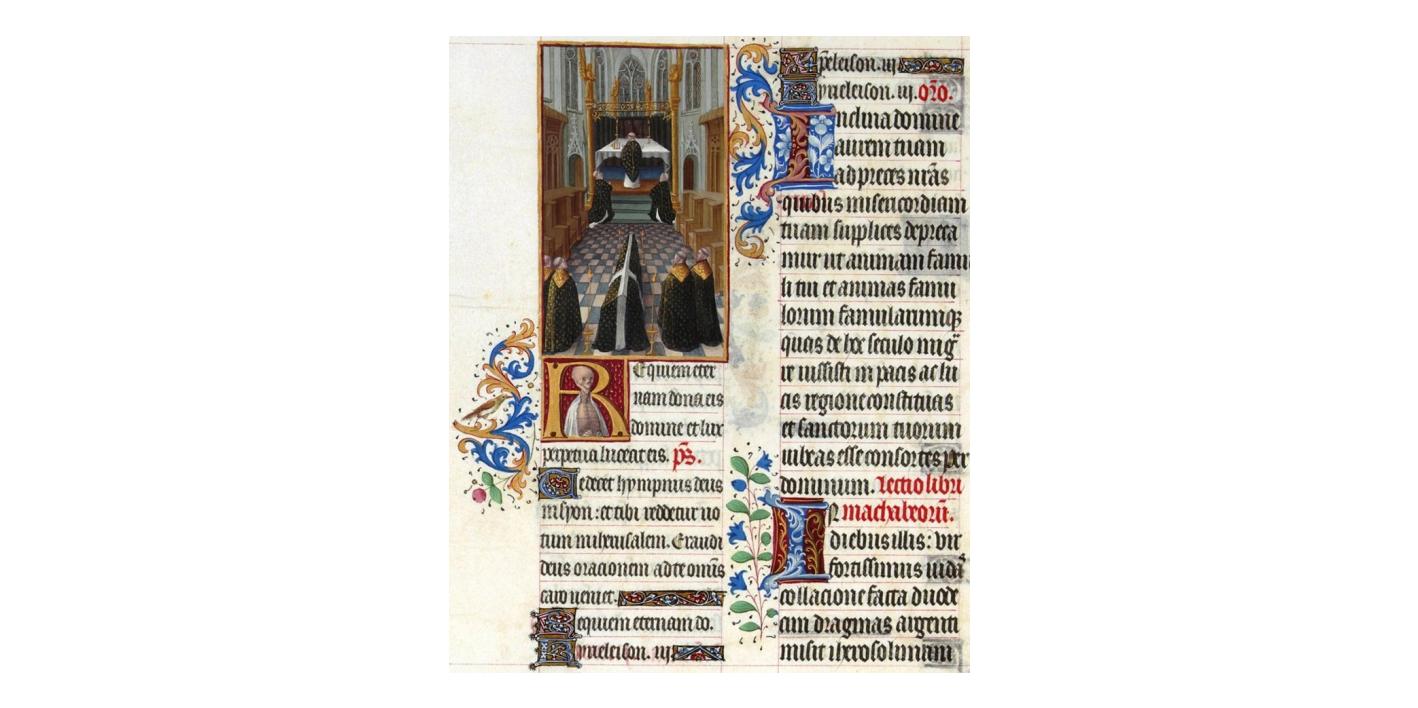 Requiem eter
nam dona eis
domine et lux
perpetua luceat eis. p̄s.
Te decet hympnus deus
in syon : et tibi reddetur uo
tum in iherusalem. Exaudi
deus oracionem ad te om̄is
caro ueniet.
Requiem eternam do.
Kyrieleison. iij
Xp̄eleison. iij
Kyrieleison. iij. or̄o.
Inclina domine
aurem tuam
ad preces nr̄as
quibus misericordiam
tuam supplices depreca
mur ut animam famu
li tui et animas famu
lorum famularumqꝫ
quas de hoc seculo migra
re iussisti in pacis ac lu
cis regione constituas
et sanctorum tuorum
iubeas esse consortes per
dominum. Lectio libri
machabeorū.
In
diebus illis : vir
fortissimus iudas
collacione facta duode
cim dragmas argenti
misit iherosolimam